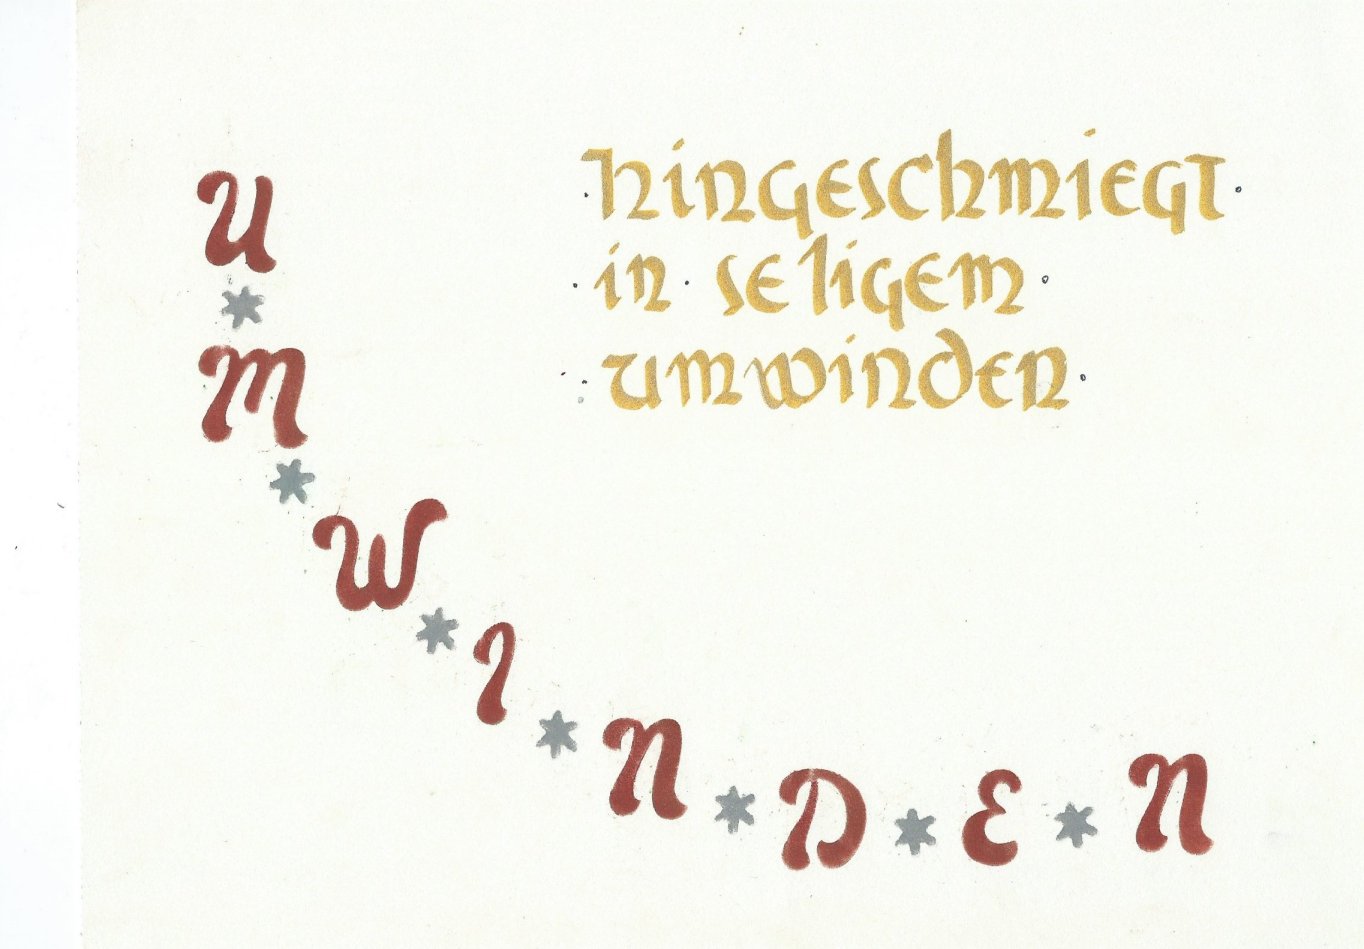 hingeschmiegt
in seligem
umwinden
U*M*W*I*N*D*E*N